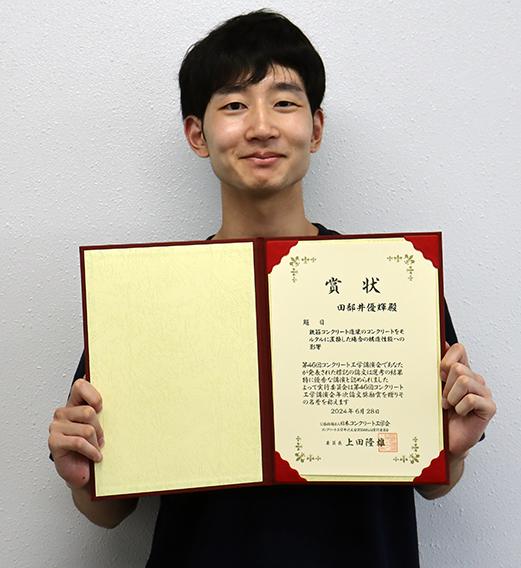 賞状
田部井優輝殿
題目
鉄筋コンクリート造梁のコンクリートをモ
ルタルに置換した場合の構造性能への
影響
第46回コンクリート工学講演会であなた
が発表された標記の論文は選考の結果
特に優秀な講演と認められました
よって実行委員会は第46回コンクリート
工学講演会年次論文奨励賞を贈りそ
の名誉を称えます
2024年6月28日
公益社団法人日本コンクリート工学会
委員長 上田隆雄